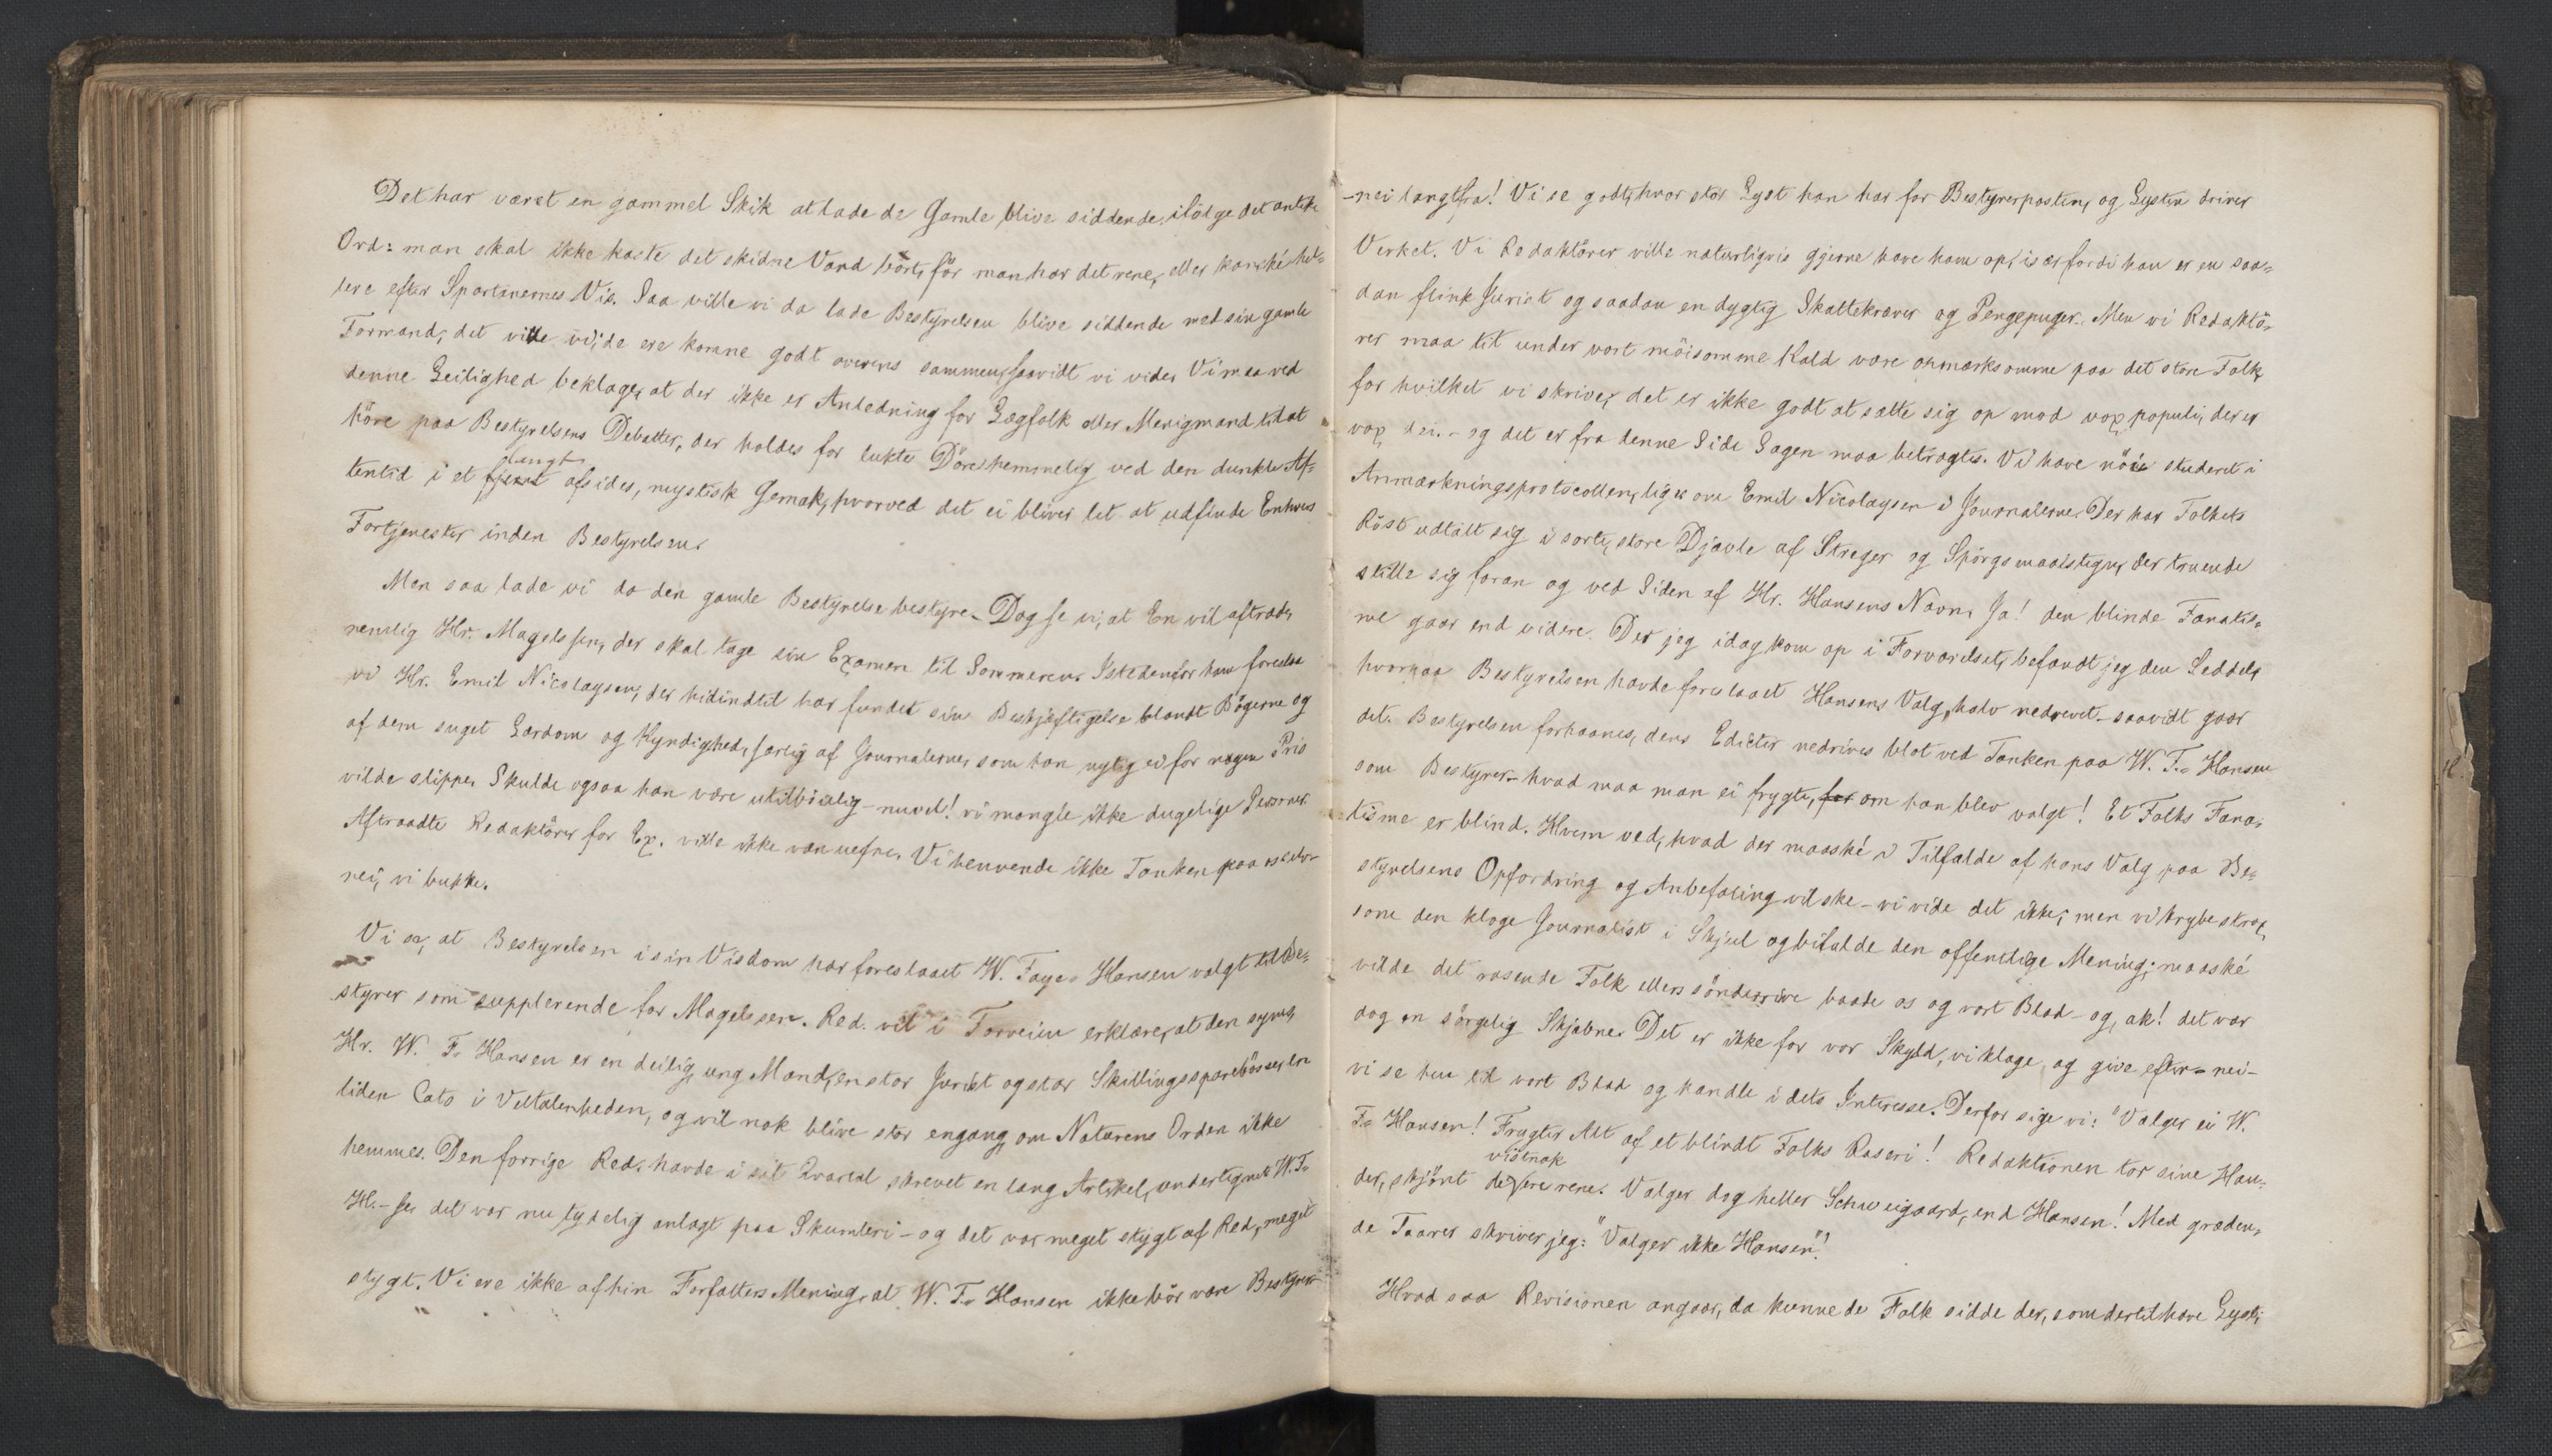 Det har været en gammel Skik at lade de Gamle blive siddende, ifölge det antike
Ord: man skal ikke kaste det skidne Vand bört, för man har det rene, eller kanské hel-
lere efter Spartanernes Vis. Saa ville vi da lade Bestyrelsen blive siddende med sin gamle
Formand, det ville vi; de ere komne godt overens sammen, saavidt vi vide. Vi maa ved
denne Leilighed beklage, at der ikke er Anledning for Lægfolk eller Menigmand til at
höre paa Bestyrelsens Debatter, der holdes for lukte Döre, hemmelig ved den dunkle Af-
tentid i et fjernt langt afsides, mystisk Gemak, hvorved det ei bliver let at udfinde Enhvers
Fortjenester inden Bestyrelsen.
Men saa lade vi da den gamle Bestyrelse bestyre. Dog se vi, at En vil aftræde,
nemlig Hr. Magelssen, der skal tage sin Examen til Sommeren. Istedenfor ham foreslaa
vi Hr. Emil Nicolaysen, der hidindtil har fundet sin Beskjæftigelse blandt Bögerne og
af dem suget Lærdom og Kyndighed, særlig af Journalerne, som han nylig ei for nogen Pris
vilde slippe. Skulde ogsaa han være utilböielig - nuvel! vi mangle ikke dugelige Personer.
Aftraadte Redaktörer for Ex. ville ikke være uefne. Vi henvende ikke Tanken paa os selv -
nei, vi bukke.
Vi se, at Bestyrelsen i sin Visdom har foreslaaet W. Faye. Hansen valgt til Be-
styrer som supplerende for Magelssen. Red. vil i Forveien erklære, at den synes,
Hr. W. F. Hansen er en deilig ung Mand, en stor Jurist og stor Skillingssparebösse, en
liden Cato i Veltalenheden, og vil nok blive stor engang, om Naturens Orden ikke
hemmes. Den forrige Red. havde i sit Qvartal skrevet en lang Artikel, undertegnet W. F.
H. - se, det var nu tydelig anlagt paa Skumleri - og det var meget stygt af Red, meget
stygt. Vi ere ikke af hin Forfatters Mening, at W. F. Hansen ikke bör være Bestyrer
- nei langtfra! Vi se godt, hvor stor Lyst han har for Bestyrerposten, og Lysten driver
Verket. Vi Redaktörer ville naturligvis gjerne have ham op, især fordi han er en saa-
dan flink Jurist og saadan en dygtig Skattekræver og Pengepuger. Men vi Redaktö-
rer maa tit under vort möisomme Kald være opmærksomme paa det store Folk,
for hvilket vi skrive, det er ikke godt at sætte sig op mod vox populi, der er
vox dei. - og det er fra denne Side Sagen maa betragtes. Vi have nöie studeret i
Anmærkningsprotocollen, ligesom Emil Nicolaysen i Journalerne. Der har Folkets
Röst udtalt sig i sorte, store Djævle af Streger og Spörgsmaalstegn, der truende
stille sig foran og ved Siden af Hr. Hansens Navn. Ja! den blinde Fanatis-
me gaar end videre. Der jeg idag kom op i Forværelset, befandt jeg den Seddel,
hvorpaa Bestyrelsen havde foreslaaet Hansens Valg, halv nedrevet - saavidt gaar
det. Bestyrelsen forhaanes, dens Edicter nedrives blot ved Tanken paa W. F. Hansen
som Bestyrer - hvad maa man ei frygte, for om han blev valgt! Et Folks Fana-
tisme er blind. Hvem ved, hvad der maaské i Tilfælde af hans Valg paa Be-
styrelsens Opfordring og Anbefaling vil ske - vi vide det ikke; men vi krybe strax,
som den kloge Journalist i Skjul og bifalde den offentlige Mening; maaské
vilde det rasende Folk ellers sönderrive baade os og vort Blad - og, ak! det var
dog en sörgelig Skjæbne. Det er ikke for vor Skyld, vi klage og give efter - nei -
vi se hen til vort Blad og handle i dets Interesse. Derfor sige vi: "Vælger ei W.
F. Hansen! Frygter Alt af et blindt Folks Raseri! Redaktionen tor sine Hæn-
der, skjönt de vistnok ere rene. Vælger dog heller Schweigaard, end Hansen! Med græden-
de Taarer skriver jeg: "Vælger ikke Hansen"!
Hvad saa Revisionen angaar, da kunne de Folk sidde der, som dertil have Lyst;